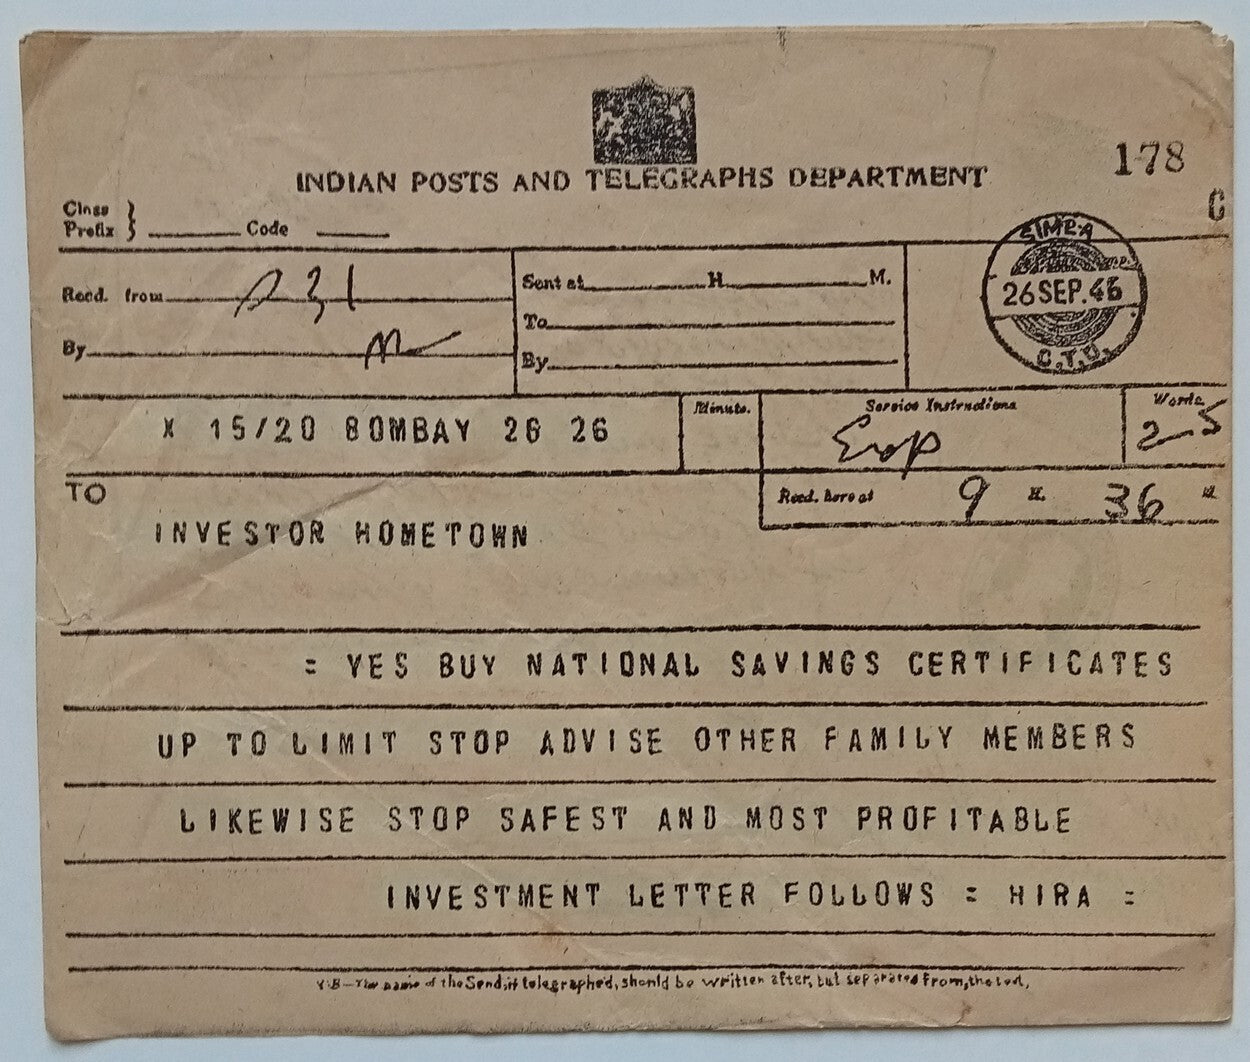 INDIAN POSTS AND TELEGRAPHS DEPARTMENT
178
G
Class
Prefix } Code
Recd. from 231
By
Sent at H. M.
To
By
SIMLA
26 SEP. 46
C.T.O.
X 15/20 BOMBAY 26 26
Minute.
Service Instructions
Words
25
TO
Recd. here at 9 H. 36 M
INVESTOR HOMETOWN
= YES BUY NATIONAL SAVINGS CERTIFICATES
UP TO LIMIT STOP ADVISE OTHER FAMILY MEMBERS
LIKEWISE STOP SAFEST AND MOST PROFITABLE
INVESTMENT LETTER FOLLOWS = HIRA =
N.B—The name of the Send, if telegraphed, should be written after, but separated from, the text,